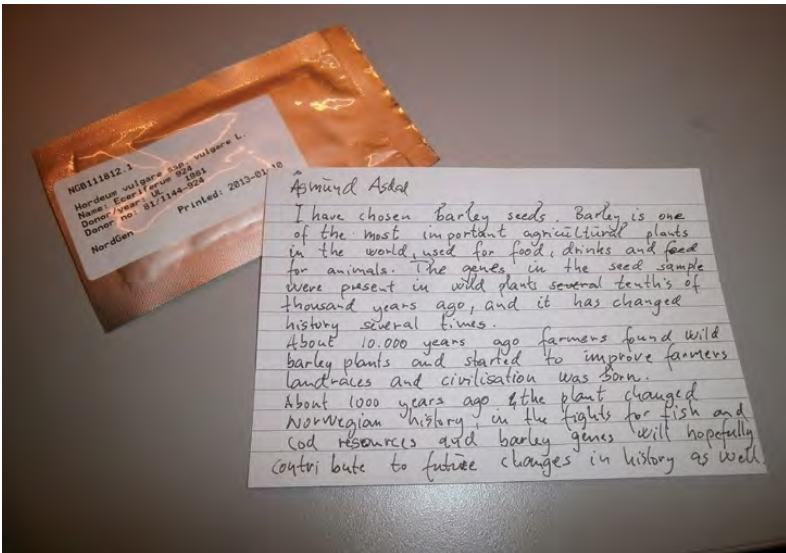 NGB111812.1
Hordeum vulgare ssp. vulgare L.
Name: Eceriferum 924
Donor/year: UL 1981
Donor no: 81/1144-924
Printed: 2013-01-10
NordGen
Åsmund Asdal
I have chosen Barley seeds. Barley is one
of the most important agricultural plants
in the world, used for food, drinks and feed
for animals. The genes in the seed sample
were present in wild plants several tenth's of
thousand years ago, and it has changed
history several times.
About 10.000 years ago farmers found wild
barley plants and started to improve farmers
landraces and civilisation was born.
About 1000 years ago the plant changed
Norwegian history, in the fights for fish and
cod resources and barley genes will hopefully
contribute to future changes in history as well